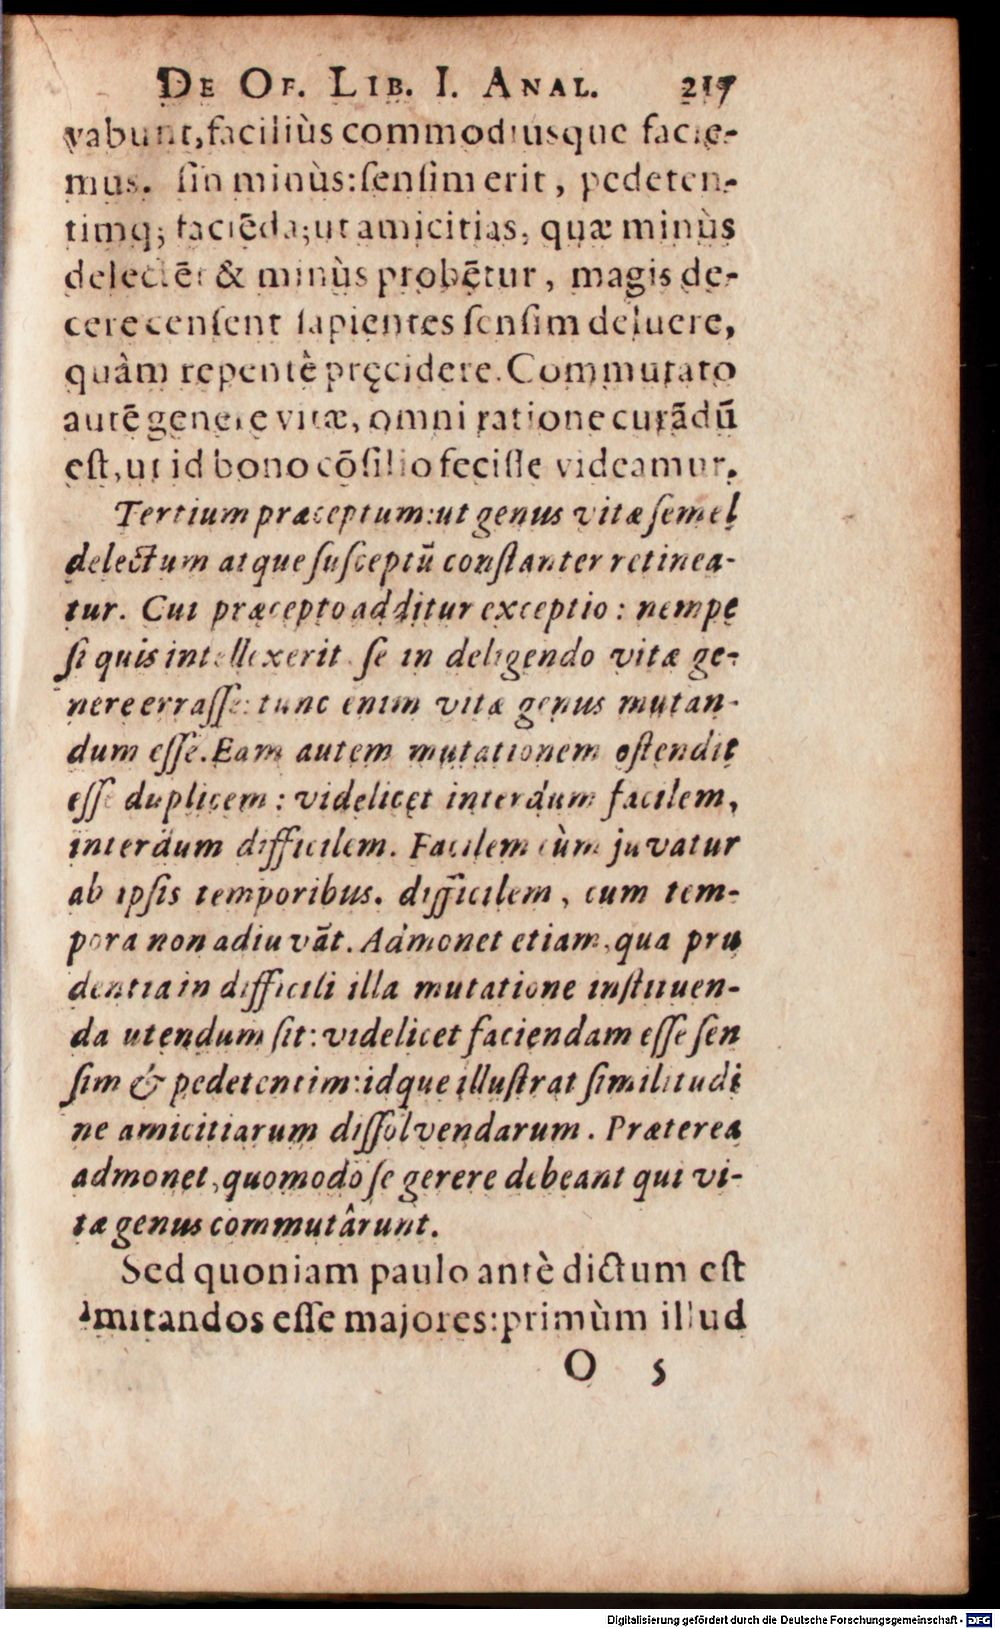 De Of. Lib. I. Anal. 217
vabunt, faciliùs commodiusque facie-
mus. ſin minùs: ſenſim erit, pedeten-
timq; faciēda; ut amicitias, quæ minùs
delectēt & minùs probētur, magis de-
cere cenſent ſapientes ſenſim deluere,
quàm repentè pręcidere. Commutato
autē genere vitæ, omni ratione curādū
eſt, ut id bono cōſilio feciſſe videamur.
Tertium præceptum: ut genus vitæ ſemel
delectum atque ſuſceptū conſtanter retinea-
tur. Cui præcepto additur exceptio: nempe
ſi quis intellexerit ſe in deligendo vitæ ge-
nere erraſſe: tunc enim vitæ genus mutan-
dum eſſe. Eam autem mutationem oſtendit
eſſe duplicem: videlicet interdum facilem,
interdum difficilem. Facilem cùm juvatur
ab ipſis temporibus. difficilem, cum tem-
pora non adiuvāt. Admonet etiam, qua pru
dentia in difficili illa mutatione inſtituen-
da utendum ſit: videlicet faciendam eſſe ſen
ſim & pedetentim: idque illuſtrat ſimilitudi
ne amicitiarum diſſolvendarum. Præterea
admonet, quomodo ſe gerere debeant qui vi-
tæ genus commutârunt.
Sed quoniam paulo antè dictum eſt
imitandos eſſe majores: primùm illud
O 5
Digitalisierung gefördert durch die Deutsche Forschungsgemeinschaft - DFG